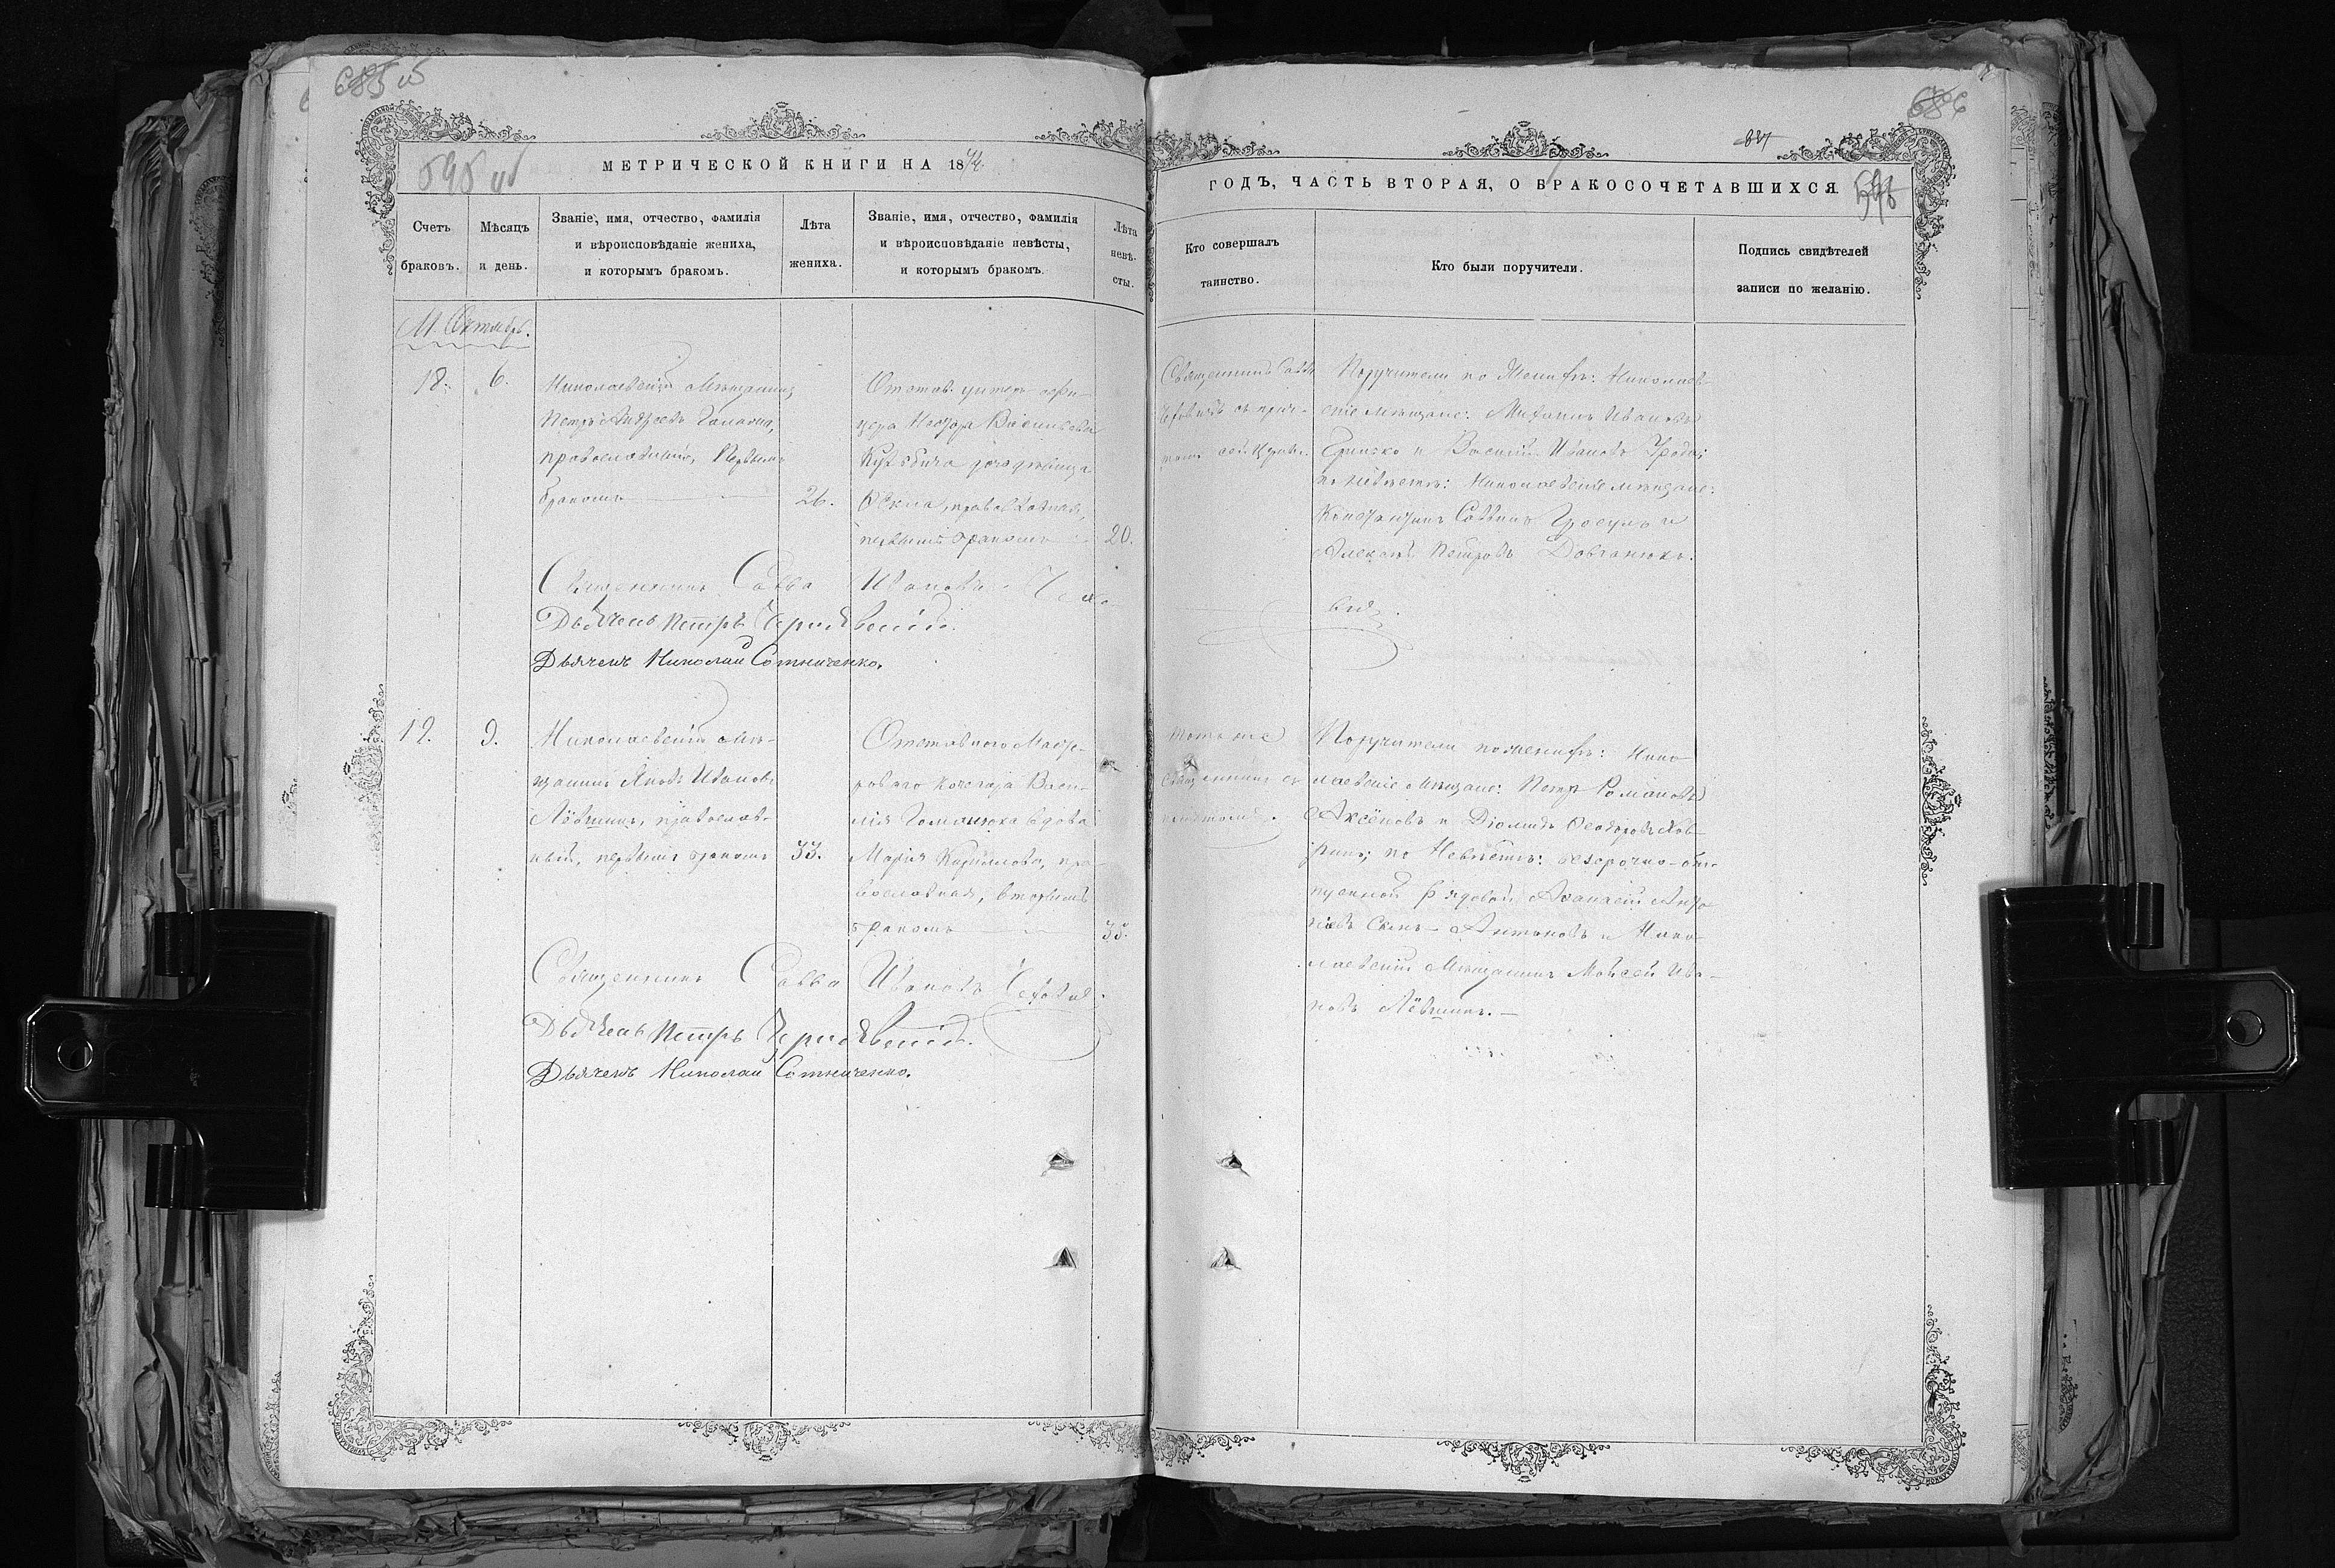 685 об
686
837
595 об
596
МЕТРИЧЕСКОЙ КНИГИ НА 1872
Счетъ браковъ.
Мѣсяцъ и день.
Званіе, имя, отчество, фамилія
и вѣроисповѣданіе жениха,
и которымъ бракомъ.
Лѣта жениха.
Званіе, имя, отчество, фамилія
и вѣроисповѣданіе невѣсты,
и которымъ бракомъ.
Лѣта невѣсты.
М. Октябрь.
18.
6.
Николаевскій Мѣщанинъ
Петръ Андреевъ
православный, Первымъ
бракомъ
26.
Отстав. унтеръ-офи-
цера Нестора Васильева
дочь дѣвица
Ѳекла, православная,
первымъ бракомъ
20.
Священникъ Савва Ивановъ
Дьячекъ Петръ Чернявскій.
Дьячекъ Николай Сотниченко.
19.
9.
Николаевскій мѣ-
щанинъ Яковъ Ивановъ
Лёвшинъ, православ-
ный, первымъ бракомъ
33.
Отставного Масте-
роваго Кочегара Васи-
лія Гоманюка вдова
Марія Кириллова, пра-
вославная, вторымъ
бракомъ
35.
Священникъ Савва Ивановъ
Дьячекъ Петръ Чернявскій.
Дьячекъ Николай Сотниченко.
ГОДЪ, ЧАСТЬ ВТОРАЯ, О БРАКОСОЧЕТАВШИХСЯ.
Кто совершалъ
таинство.
Кто были поручители.
Подпись свидѣтелей
записи по желанію.
Священникъ Савва
съ прич-
томъ
Поручители по Женихѣ: Николаев-
скіе мѣщане: Михаилъ Ивановъ
и Василій Ивановъ
по невѣстѣ: Николаевскіе мѣщане:
Константинъ Саввинъ и
Алексѣй Петровъ Довганюкъ.
Тотъ же
Священникъ съ
причтомъ.
Поручители по женихѣ: Нико-
лаевскіе Мѣщане: Петръ Романовъ
Аксёновъ и Діомидъ Ѳеодоровъ
по Невѣстѣ: безсрочно-от-
пускной Рядовой
Антоновъ и Нико-
лаевскій Мѣщанинъ Моисей Ива-
новъ Лёвшинъ.